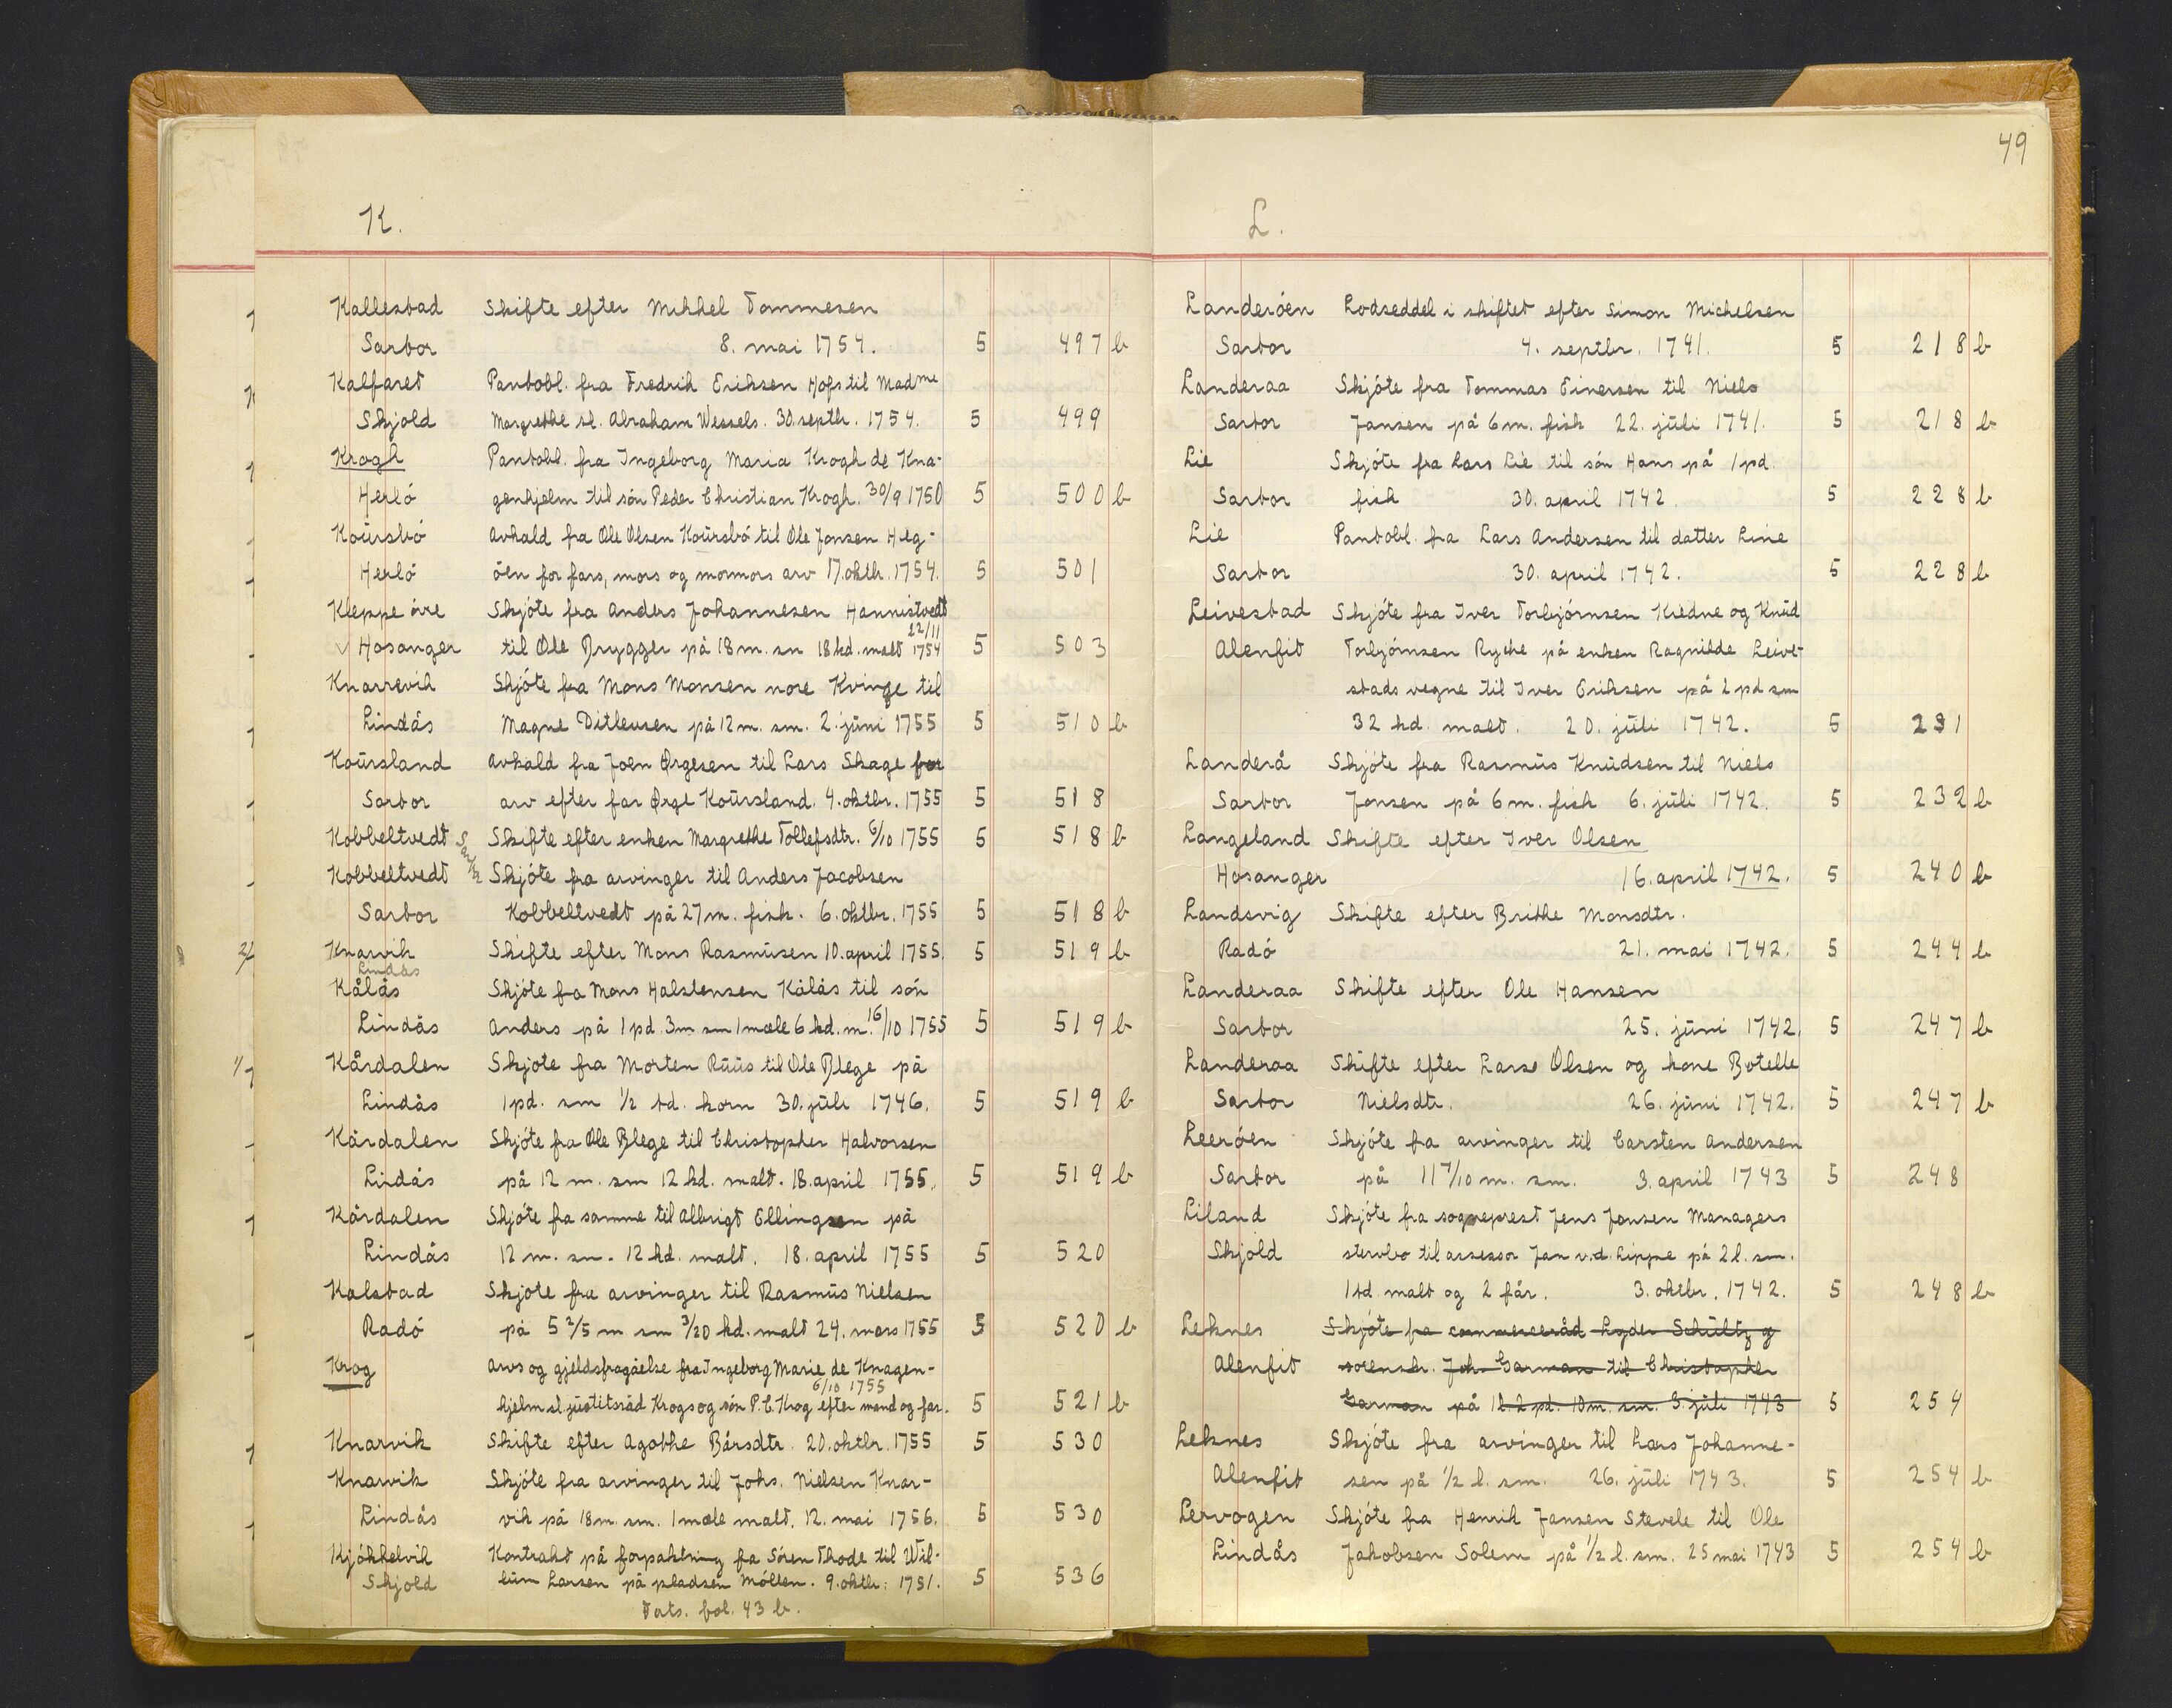 K.
Kallestad Skifte efter Mikkel Tommesen
Sartor 8. mai 1754. 5 497 b
Kalfaret Pantobl. fra Fredrik Eriksen Hofs til Madme
Skjold Margrethe sl. Abraham Wessels. 30. septbr. 1754. 5 499
Krogh Pantobl. fra Ingeborg Maria Krogh de Kna-
Herló genhjelm til són Peder Christian Krogh. 30/9 1750 5 500 b
Koürsbó Avkald fra Ole Olsen Koürsbó til Ole Jonsen Heg-
Herló óen for fars, mors og mormors arv 17. oktbr. 1754. 5 501
Kleppe óvre Skjóte fra Anders Johannesen Hannistvedt
Hosanger til Ole Brygger på 18 m. sm 18 kd. malt 22/11 1754 5 503
Knarrevik Skjóte fra Mons Monsen nore Kvinge til
Lindås Magne Ditleusen på 12 m. sm. 2. jüni 1755 5 510 b
Koürsland Avkald fra Joen Ørgesen til Lars Skage for
Sartor arv efter far Ørge Koürsland. 4. oktbr. 1755 5 518
Kobbeltvedt Sartor Skifte efter enken Margrethe Tollefsdtr. 6/10 1755 5 518 b
Kobbeltvedt Skjóte fra arvinger til Anders Jacobsen
Sartor Kobbeltvedt på 27 m. fisk. 6. oktbr. 1755 5 518 b
Knarvik Skifte efter Mons Rasmüsen 10. april 1755. 5 519 b
Lindås
Kålås Skjóte fra Mons Halstensen Kålås til són
Lindås Anders på 1 pd. 3 m sm 1 mæle 6 kd. m. 16/10 1755 5 519 b
Kårdalen Skjote fra Morten Rüüs til Ole Blege på
Lindås 1 pd. sm 1/2 td. korn 30. jüli 1746. 5 519 b
Kårdalen Skjóte fra Ole Blege til Christopher Halvorsen
Lindås på 12 m. sm 12 kd. malt. 18. april 1755. 5 519 b
Kårdalen Skjóte fra samme til Albrigt Ellingsen på
Lindås 12 m. sm. 12 kd. malt. 18. april 1755 5 520
Kalstad Skjote fra arvinger til Rasmüs Nielsen
Radó på 5 2/5 m sm 3/20 kd. malt 24. mars 1755 5 520 b
Krog Arvs og gjeldsfragåelse fra Ingeborg Marie de Knagen-
6/10 1755
hjelm sl. jüstitsråd Krogs og són P. C. Krog efter mand og far. 5 521 b
Knarvik Skifte efter Agathe Bårsdtr. 20. oktbr. 1755 5 530
Knarvik Skjóte fra arvinger til Johs. Nielsen Knar-
Lindås vik på 18 m. sm. 1 mæle malt. 12. mai 1756. 5 530
Kjókkelvik Kontrakt på forpaktning fra Sóren Thode til Wil-
Skjold lüm Larsen på pladsen Mólten. 9. oktbr. 1751. 5 536
Forts. fol. 43 b.
49
L.
Landeróen Lodseddel i skiftet efter Simon Michelsen
Sartor 4. septbr. 1741. 5 218 b
Landeraa Skjóte fra Tommas Einersen til Niels
Sartor Jansen på 6 m. fisk 22. jüli 1741. 5 218 b
Lie Skjóte fra Lars Lie til són Hans på 1 pd.
Sartor fisk 30. april 1742. 5 228 b
Lie Pantobl. fra Lars Andersen til datter Line
Sartor 30. april 1742. 5 228 b
Leivestad Skjóte fra Iver Torbjórnsen Kiedne og Knüd
Alenfit Torbjórnsen Rycke på enken Ragnilde Leive-
stads vegne til Iver Eriksen på 2 pd sm
32 kd. malt. 20. jüli 1742. 5 231
Landerå Skjóte fra Rasmüs Knüdsen til Niels
Sartor Jonsen på 6 m. fisk 6. jüli 1742. 5 232 b
Langeland Skifte efter Iver Olsen
Hosanger 16. april 1742. 5 240 b
Landsvig Skifte efter Brithe Monsdtr.
Radó 21. mai 1742. 5 244 b
Landeraa Skifte efter Ole Hansen
Sartor 25. jüni 1742. 5 247 b
Landeraa Skifte efter Lars Olsen og kone Botelle
Sartor Nielsdtr. 26. jüni 1742. 5 247 b
Leeróen Skjóte fra arvinger til Carsten Andersen
Sartor på 11 7/10 m. sm. 3. april 1743 5 248
Liland Skjóte fra sogneprest Jens Jansen Managers
Skjold stervbo til assessor Jan v.d. Lippe på 2 l. sm.
1 td. malt og 2 får. 3. oktbr. 1742. 5 248 b
Leknes Skjóte fra commerceråd Lyder Schültz og
Alenfit sorenskr. Joh. Garman til Christopher
Garman på 1 l. 2 pd. 10 m. sm. 3. jüli 1743 5 254
Leknes Skjóte fra arvinger til Lars Johanne-
Alenfit sen på 1/2 l. sm. 26. jüli 1743. 5 254 b
Lervogen Skjóte fra Henrik Jansen Stevele til Ole
Lindås Jakobsen Solem på 1/2 l. sm. 25 mai 1743 5 254 b